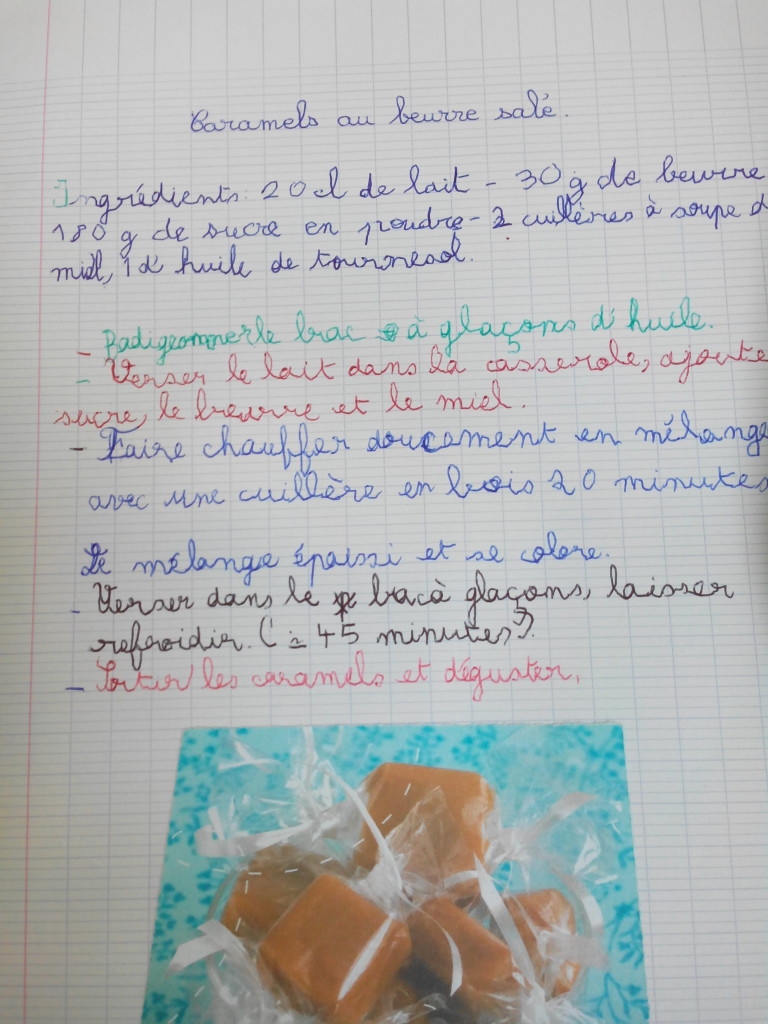 Caramels au beurre salé.
Ingrédients: 20 cl de lait - 30 g de beurre
180 g de sucre en poudre - 2 cuillères à soupe d
miel, 1 d'huile de tournesol.
- Badigeonner le bac à glaçons d'huile.
- Verser le lait dans la casserole, ajoute
sucre, le beurre et le miel.
- Faire chauffer doucement en mélange
avec une cuillère en bois 20 minutes
Le mélange épaissi et se colore.
- Verser dans le bac à glaçons, laisser
refroidir. (≃ 45 minutes).
- Sortir les caramels et déguster.